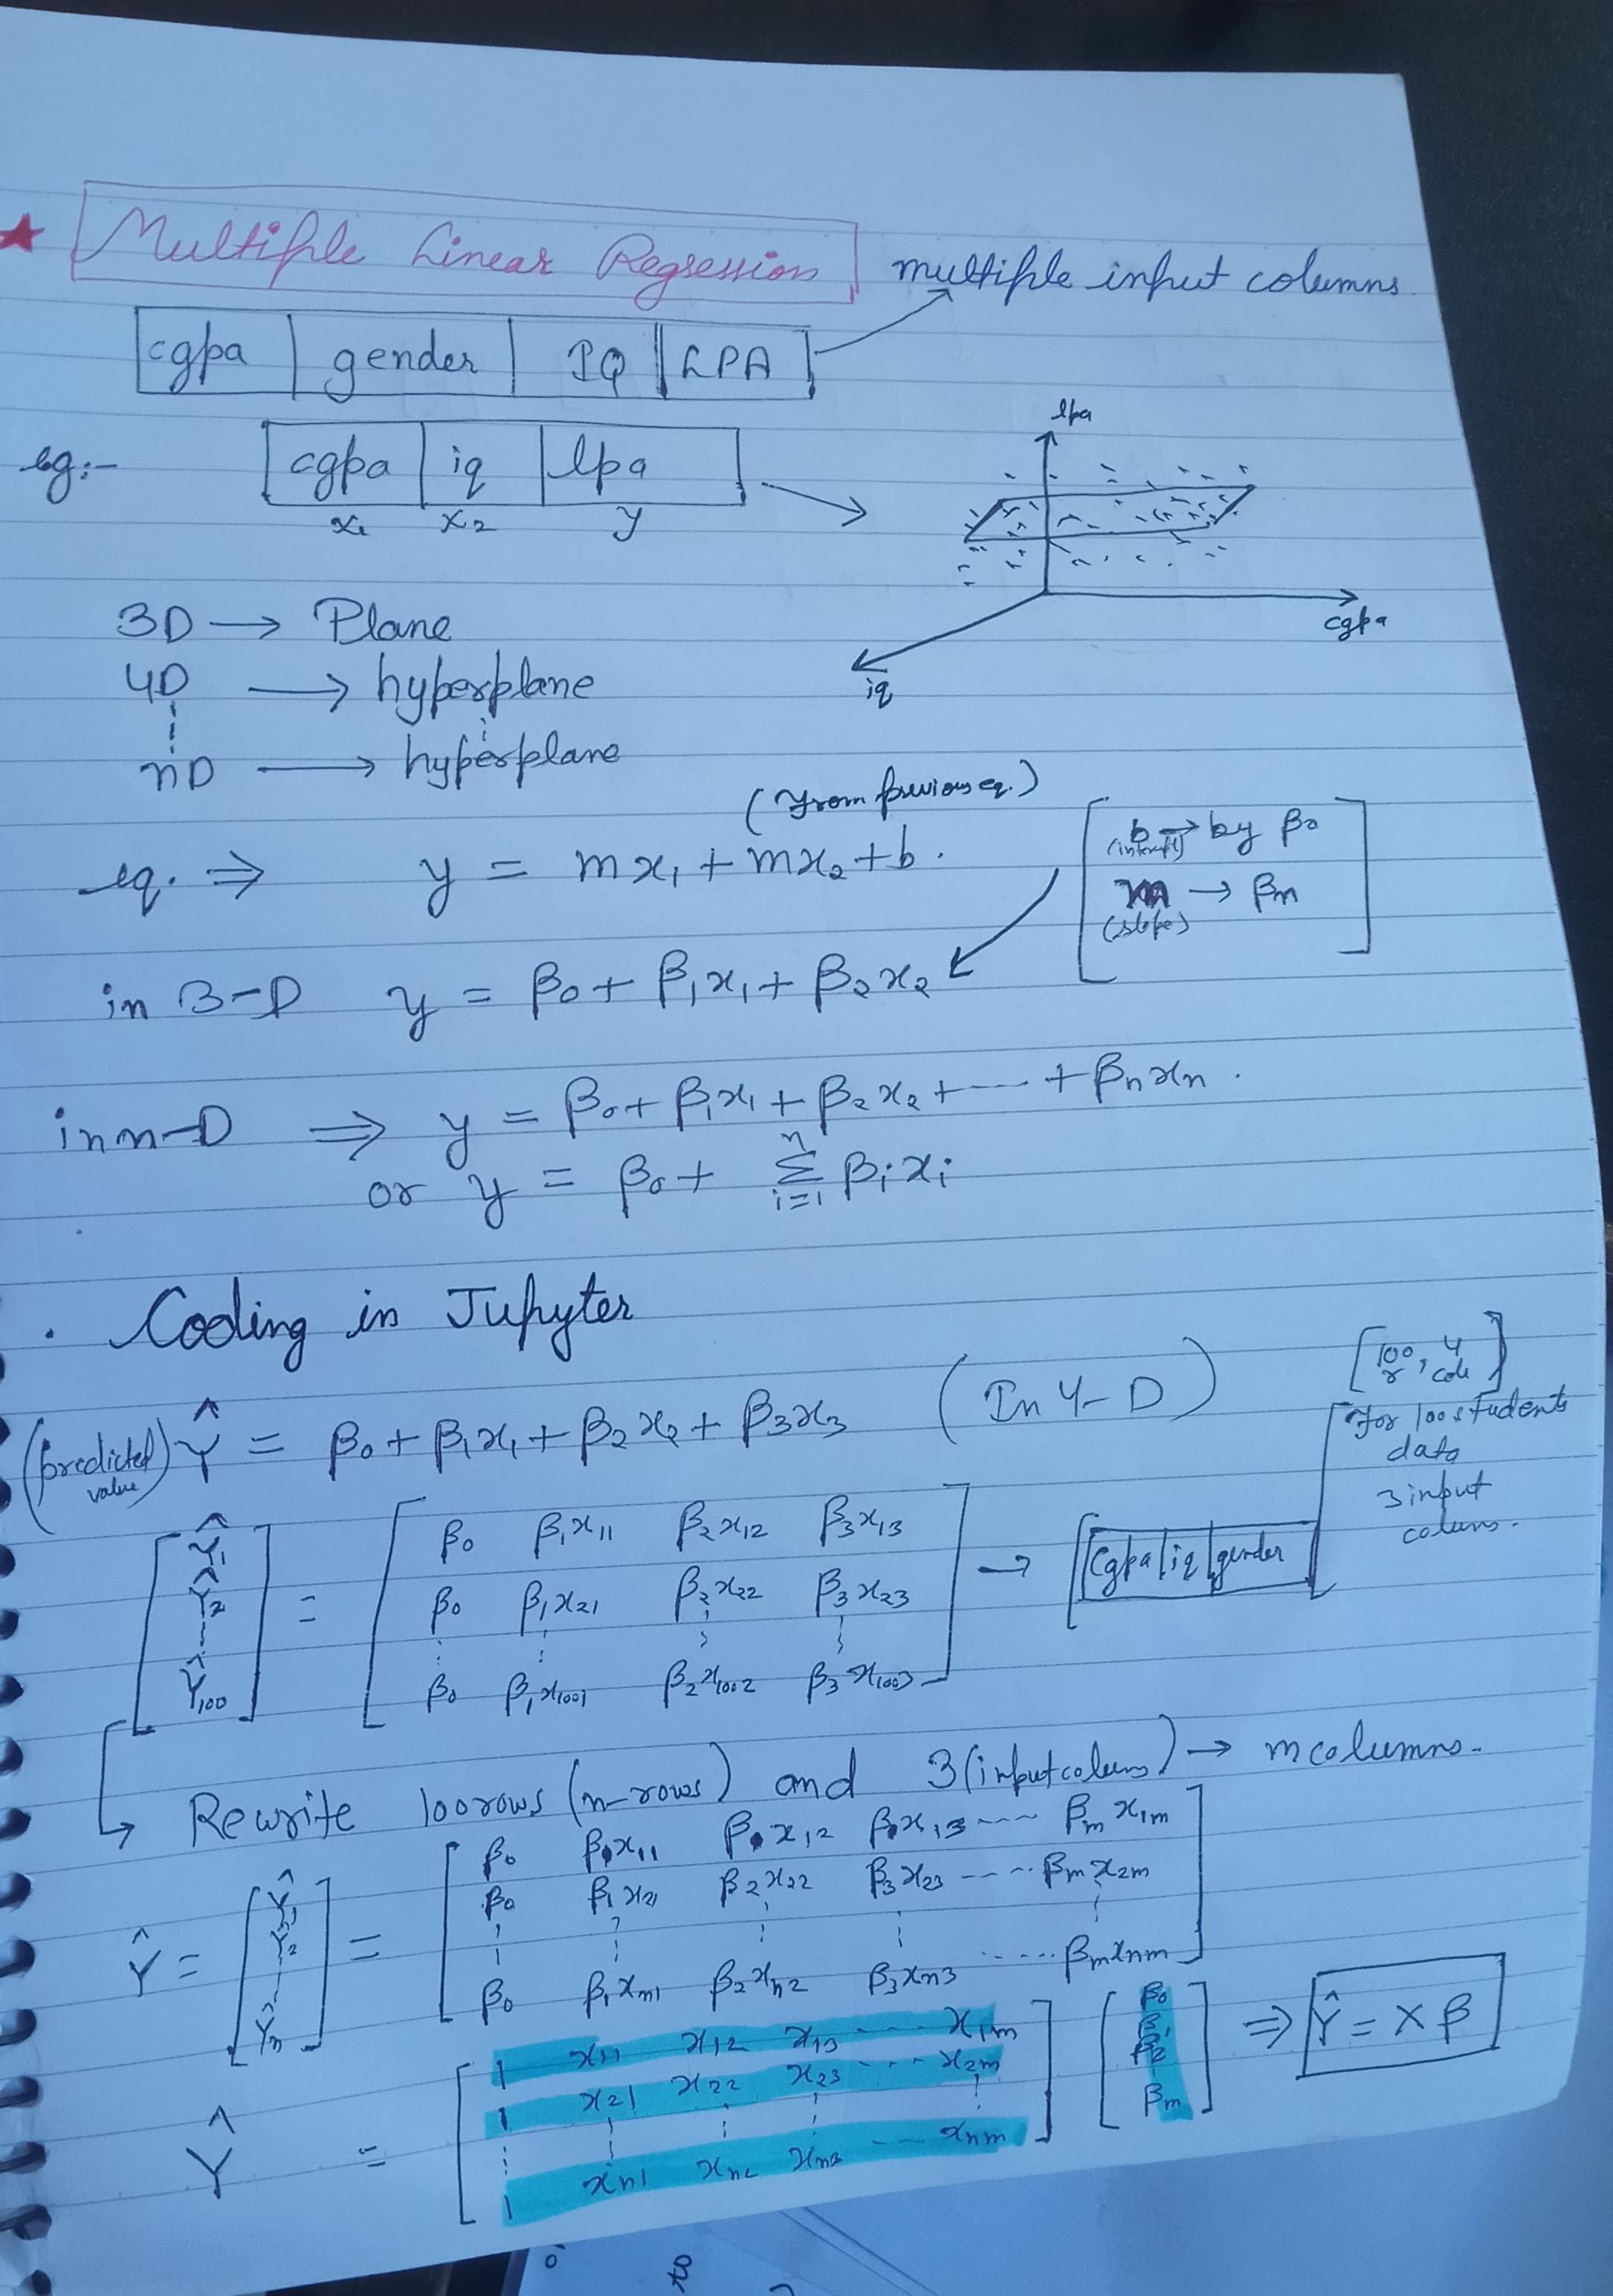 ★ Multiple Linear Regression multiple input columns
cgpa | gender | IQ | LPA
eg:- cgpa | iq | lpa
x₁ x₂ y
lpa
cgpa
iq
3D → Plane
4D → hyperplane
nD → hyperplane
(From previous eq.)
eq. ⇒ y = mx₁ + mx₂ + b.
b → by β₀
(intercept)
m → βm
(slope)
in 3-D y = β₀ + β₁x₁ + β₂x₂
in n-D ⇒ y = β₀ + β₁x₁ + β₂x₂ + ---- + βnxn.
or y = β₀ + Σ i=1 n βixi
. Coding in Jupyter
(predicted value) Ŷ = β₀ + β₁x₁ + β₂x₂ + β₃x₃ (In 4-D)
[100 r, 4 cols]
For 100 students
data
3 input
colums.
Ŷ₁ = β₀ β₁x₁₁ β₂x₁₂ β₃x₁₃
Ŷ₂ β₀ β₁x₂₁ β₂x₂₂ β₃x₂₃ → cgpa | iq | gender
Ŷ₁₀₀ β₀ β₁x₁₀₀₁ β₂x₁₀₀₂ β₃x₁₀₀₃
Rewrite 100 rows (n-rows) and 3 (input colum) → m columns.
β₀ x₁₁ x₁₂ x₁₃ ---- βm x₁m
Ŷ = Ŷ₁ Ŷ₂ Ŷn = β₀ β₁x₂₁ β₂x₂₂ β₃x₂₃ ---- βm x₂m
β₀ β₁xn₁ β₂xn₂ β₃xn₃ ...... βmxnm
1 x₁₁ x₁₂ x₁₃ ---- x₁m β₀
Ŷ = 1 x₂₁ x₂₂ x₂₃ --- x₂m β₁ β₂ ⇒ Ŷ = Xβ
1 xn₁ xn₂ xn₃ --- xnm βm